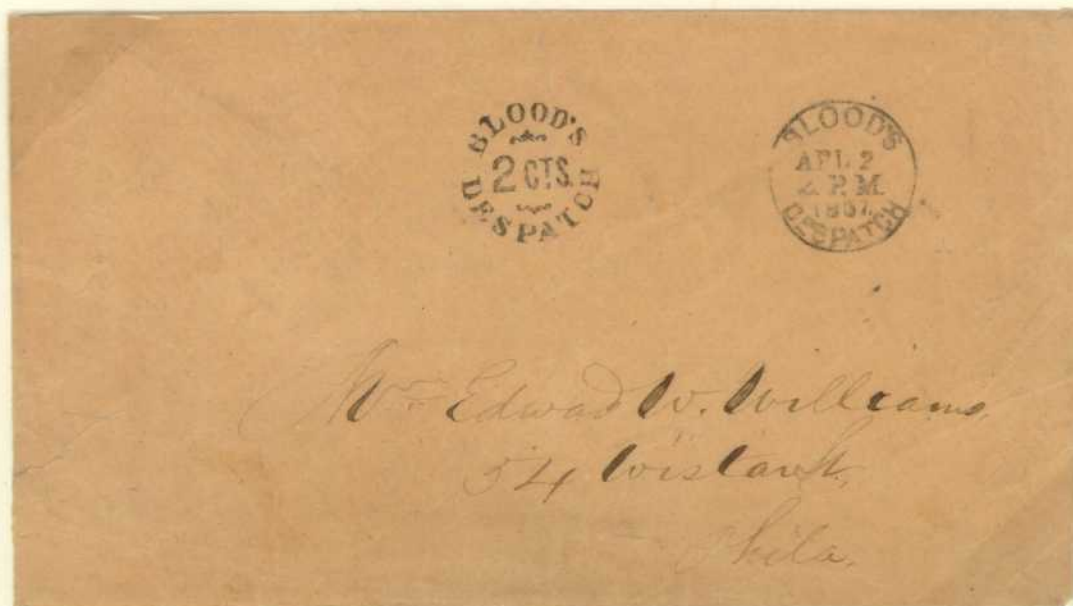 BLOOD'S
2 CTS.
DESPATCH
BLOOD'S
APL 2
P.M.
DESPATCH
Mr Edward W. Williams
54 Wistar St.
Phila.